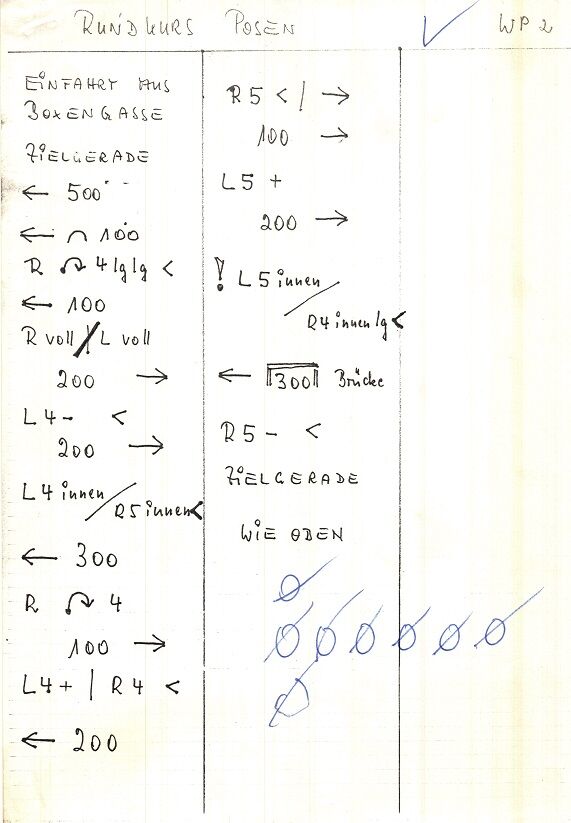 RUNDKURS POSEN WP 2
EINFAHRT AUS
BOXENGASSE
ZIELGERADE
← 500
← ∩ 100
R ↷ 4 lg lg <
← 100
R voll / L voll
200 →
L 4 - <
200 →
L 4 innen /
R 5 innen <
← 300
R ↷ 4
100 →
L 4 + | R 4 <
← 200
R 5 < | →
100 →
L 5 +
200 →
! L 5 innen /
R 4 innen lg <
← 300 Brücke
R 5 - <
ZIELGERADE
WIE OBEN